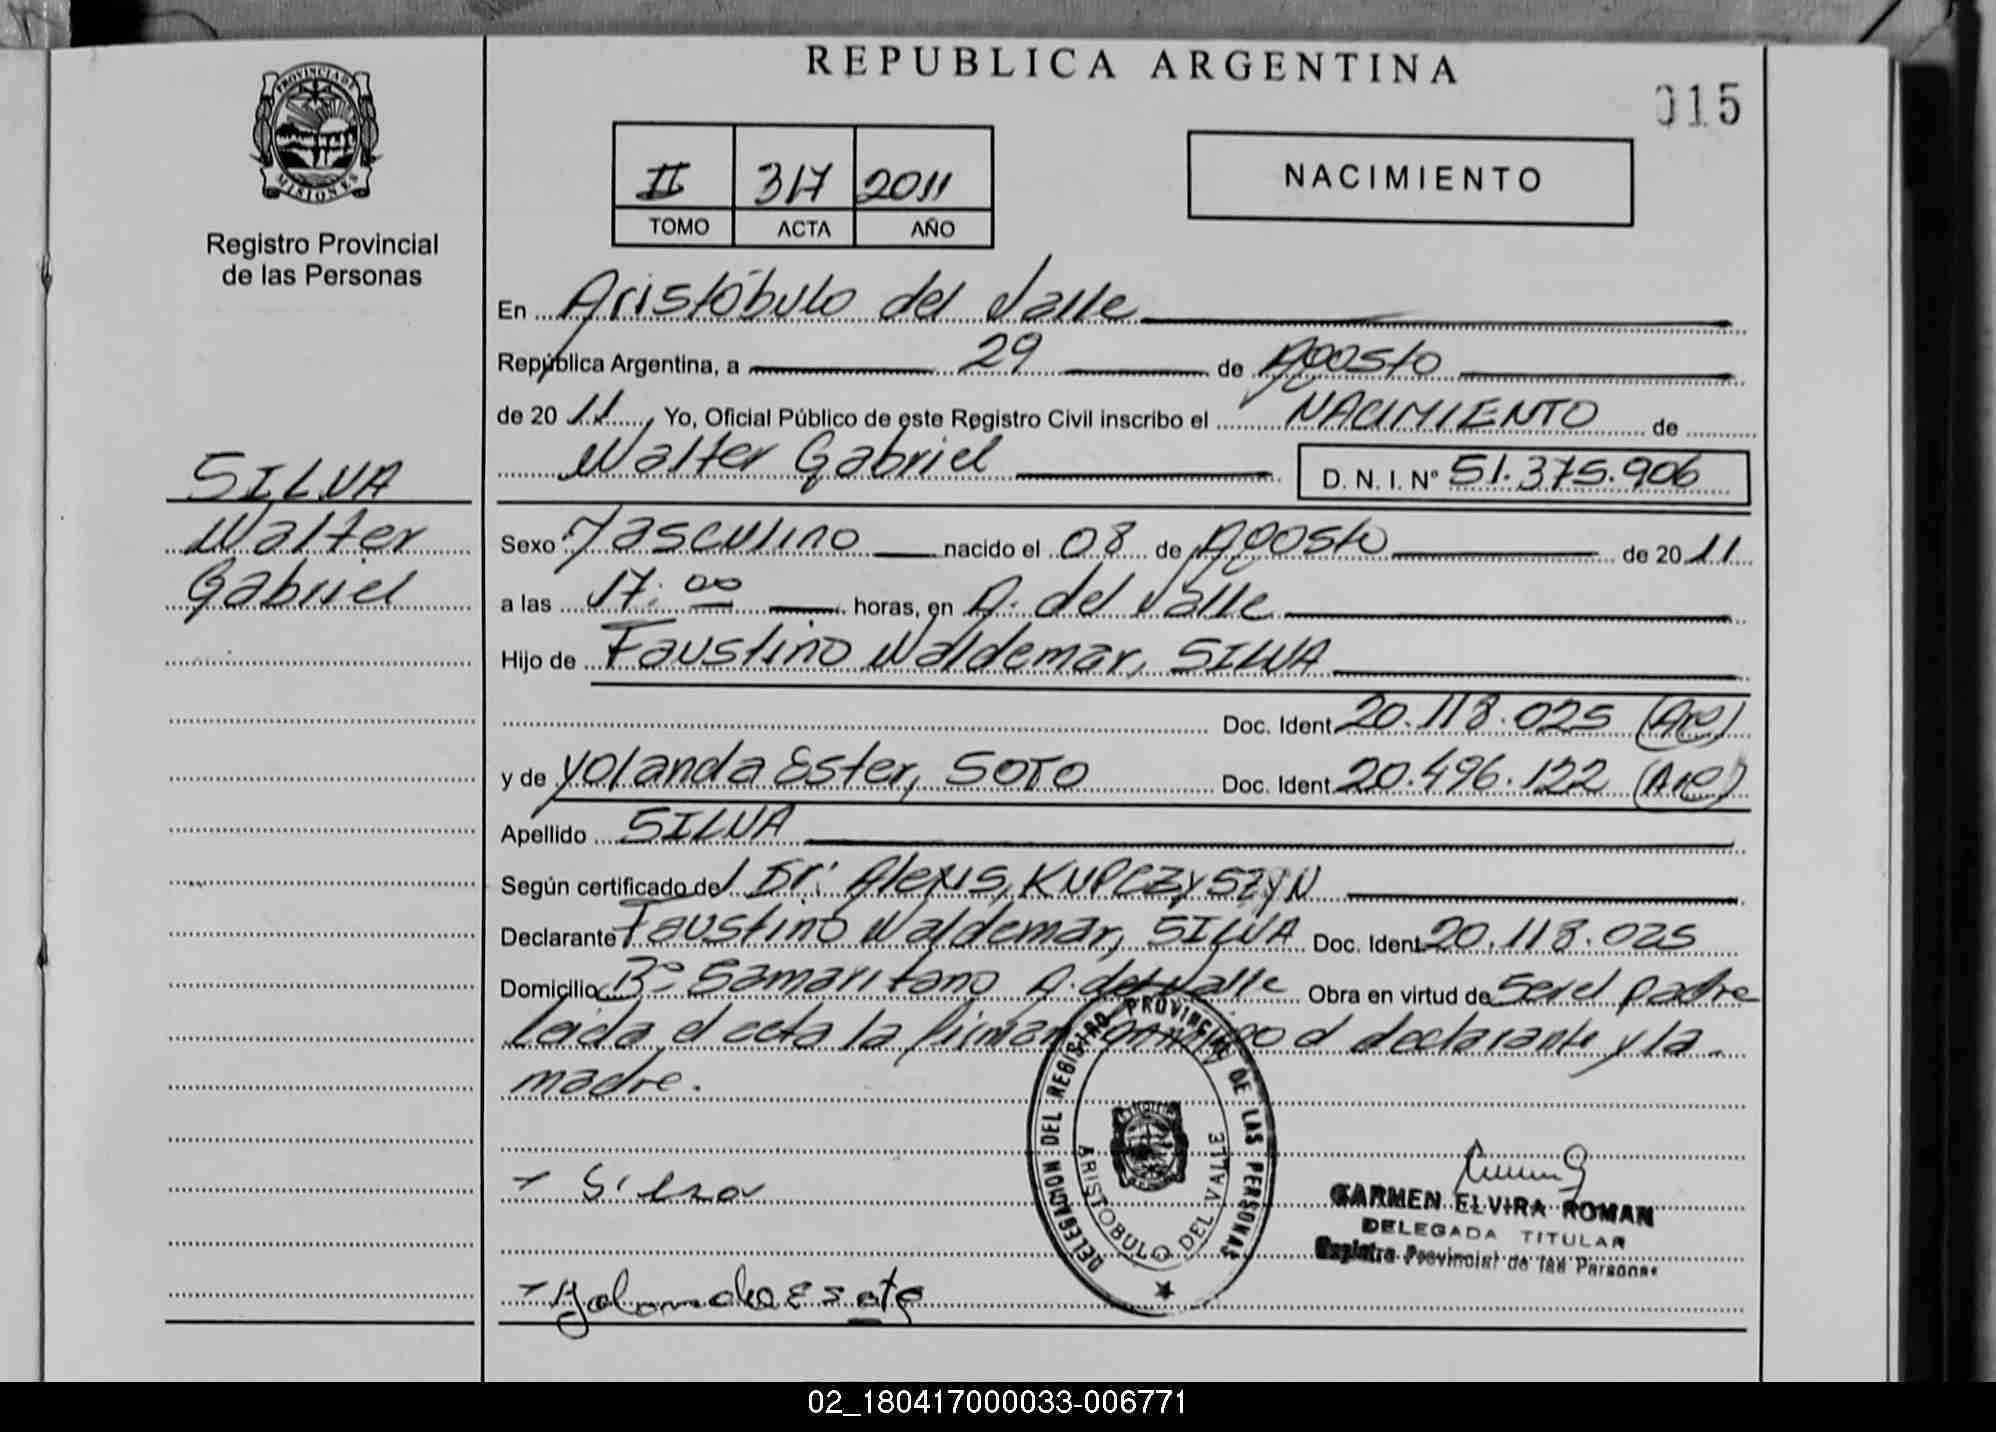 REPUBLICA ARGENTINA
015
PROVINCIA DE
MISIONES
Registro Provincial
de las Personas
II 317 2011
TOMO ACTA AÑO
NACIMIENTO
En Aristóbulo del Valle
República Argentina, a 29 de Agosto
de 20 11 Yo, Oficial Público de este Registro Civil inscribo el NACIMIENTO de
Walter Gabriel D. N. I. N° 51.375.906
SILVA
Walter
Gabriel
Sexo Masculino nacido el 08 de Agosto de 20 11
a las 17:00 horas, en A. del Valle
Hijo de Faustino Waldemar, SILVA
Doc. Ident. 20.118.025 (Arg)
y de Yolanda Ester, SOTO Doc. Ident. 20.496.122 (Arg)
Apellido SILVA
Según certificado de Dr: Alexis, KUPCZYSZYN
Declarante Faustino Waldemar, SILVA Doc. Ident. 20.118.025
Domicilio B° Samaritano A. del Valle Obra en virtud de Ser el padre
Leida el acta la firman conmigo el declarante y la
madre.
DELEGACION DEL REGISTRO PROVINCIAL DE LAS PERSONAS
ARISTOBULO DEL VALLE
Silva
Yolanda E Soto
CARMEN ELVIRA ROMAN
DELEGADA TITULAR
Registro Provincial de las Personas
02_180417000033-006771